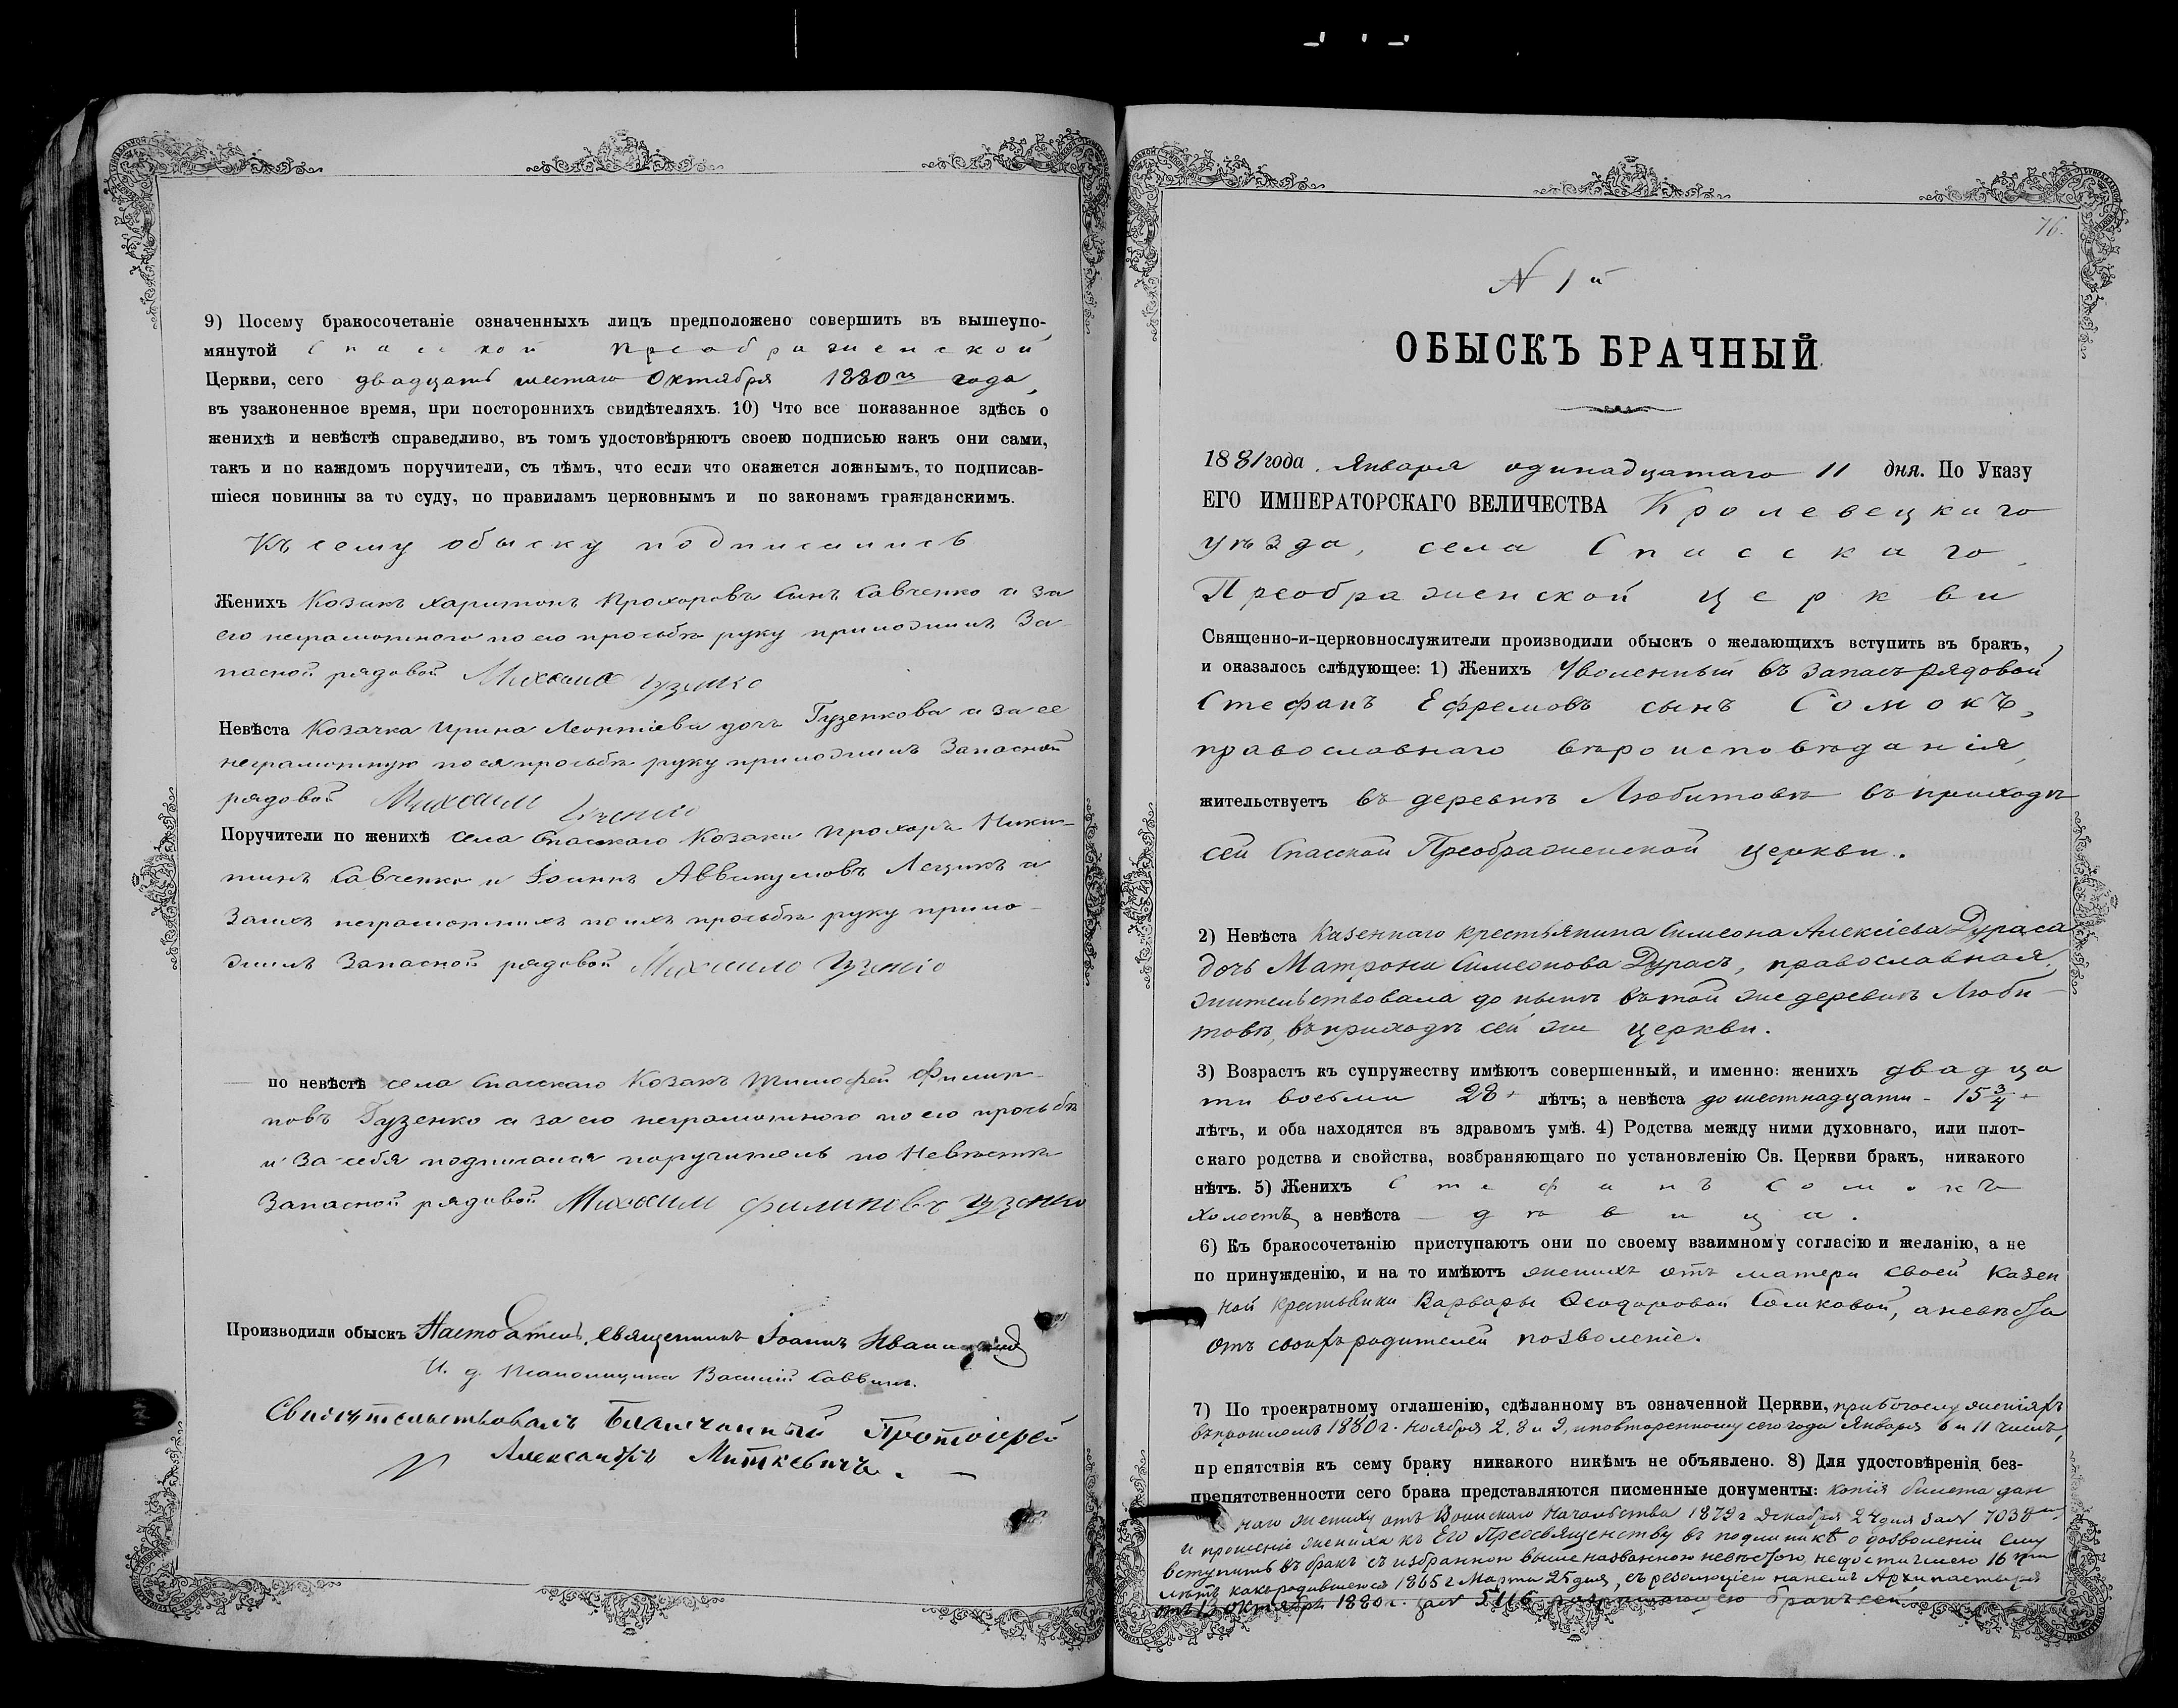 9) Посему бракосочетаніе означенныхъ лицъ предположено совершить въ вышеупо-
мянутой Спасской Преображенской
Церкви, сего двадцать шестаго Октября 1880го года,
въ узаконенное время, при постороннихъ свидѣтеляхъ. 10) Что все показанное здѣсь о
женихѣ и невѣстѣ справедливо, въ томъ удостовѣряютъ своею подписью какъ они сами,
такъ и по каждомъ поручители, съ тѣмъ, что если что окажется ложнымъ, то подписав-
шіеся повинны за то суду, по правиламъ церковнымъ и по законамъ гражданскимъ.
Къ сему обыску подписались
Женихъ Козакъ Харитонъ Прохоровъ Сынъ Савченко а за
его неграмотного по его просьбѣ руку приложилъ За-
пасной рядовой Михаилъ Гузенко
Невѣста Козачка Ирина Леонтіева дочь Гузенкова а за ее
неграмотную по ея просьбѣ руку приложилъ Запасной
рядовой Михаилъ Гузенко
Поручители по женихѣ села Спасскаго Козаки Прохоръ Ники-
тинъ Савченко и Іоаннъ Аввакумовъ Лещикъ а
за ихъ неграмотныхъ по ихъ просьбѣ руку прило-
жилъ Запасной рядовой Михаилъ Гузенко
по невѣстѣ села Спасскаго Козакъ Тимофей Филип-
повъ Гузенко а за его неграмотного по его просьбѣ
и за себя подписался поручитель по Невѣстѣ
Запасной рядовой Михаилъ Филиповъ Гузенко
Производили обыскъ Настоятель, Священникъ Іоаннъ Иваницкій
И. д. Псаломщика Василій Саввинъ.
Свидѣтельствовалъ Благочинный Протоіерей
Александръ Миткевичъ.
76.
N 1й
ОБЫСКЪ БРАЧНЫЙ
1881 года. Января одинадцатаго 11 дня. По Указу
ЕГО ИМПЕРАТОРСКАГО ВЕЛИЧЕСТВА Кролевецкаго
уѣзда, села Спасскаго,
Преображенской церкви
Священно-и-церковнослужители производили обыскъ о желающихъ вступить въ бракъ,
и оказалось слѣдующее: 1) Женихъ Уволенный въ запасъ рядовой
Стефанъ Ефремовъ сынъ Сомокъ,
православнаго вѣроисповѣданія,
жительствуетъ въ деревнѣ Любитовѣ въ приходѣ
сей Спасской Преображенской церкви.
2) Невѣста казеннаго крестьянина Симеона Алексіева Дураса
дочь Матрона Симеонова Дурасъ, православная,
жительствовала до нынѣ въ той же деревнѣ Люби-
товѣ, въ приходѣ сей же церкви.
3) Возрастъ къ супружеству имѣютъ совершенный, и именно: женихъ двадца
ти восьми 28 лѣтъ; а невѣста до шестнадцати - 15 3/4
лѣтъ, и оба находятся въ здравомъ умѣ. 4) Родства между ними духовнаго, или плот-
скаго родства и свойства, возбраняющаго по установленію Св. Церкви бракъ, никакого
нѣтъ. 5) Женихъ Стефанъ Сомокъ
холостъ, а невѣста - дѣвица.
6) Къ бракосочетанію приступаютъ они по своему взаимному согласію и желанію, а не
по принужденію, и на то имѣютъ женихъ отъ матери своей казен
ной крестьянки Варвары Ѳеодоровой Сомковой, а невѣста
отъ своихъ родителей позволеніе.
7) По троекратному оглашенію, сдѣланному въ означенной Церкви, при богослуженіяхъ
въ прошломъ 1880 г. Ноября 2, 8 и 9, и повторенному сего года Января 6 и 11 числъ,
препятствія къ сему браку никакого никѣмъ не объявлено. 8) Для удостовѣренія без-
препятственности сего брака представляются писменные документы: копія билета дан
наго жениху отъ Воинскаго Начальства 1879 г Декабря 24 дня за N 7038
и прошеніе жениха къ Его Преосвященству въ подлинникѣ о дозволеніи ему
вступить въ бракъ съ избранною выше названною невѣстою, недостигшею 16 ти
лѣтъ, какъ родившеюся 1865 г Марта 25 дня, съ резолюціею на немъ Архипастыря
отъ 13 Октября 1880 г. за N 5116 разрѣшающею бракъ сей.